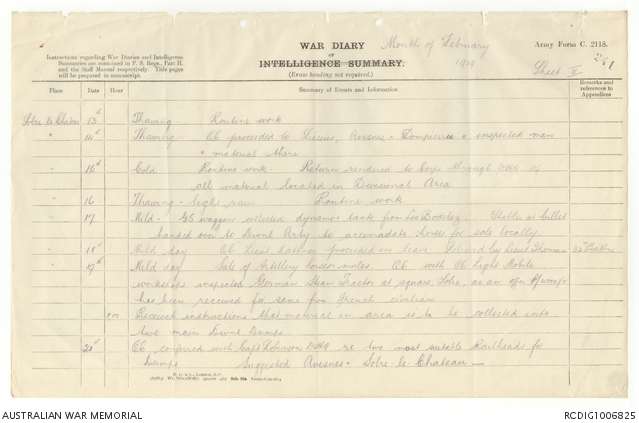 WAR DIARY
Month of February
Army Form C. 2118.
or
INTELLIGENCE SUMMARY.
1919
Sheet
Instructions regarding War Diaries and Intelligence
Summaries are contained in F. S. Regs., Part II.
and the Staff Manual respectively. Title pages
will be prepared in manuscript.
(Erase heading not required.)
Place Date Hour Summary of Events and Information Remarks and references to Appendices
Solre le Chateau 13th Thawing Routine work
" 14th Thawing OC proceeded to Liessies, Avesnes & Dompierre & inspected men
& material there
" 15th Cold Routine work. Return rendered to Corps through of
all material located in Divisional Area
" 16 Thawing - light rain Routine work
" 17 Mild - GS waggon collected dynamo back from Stable at billet
handed over to Divnl Arty to accomodate horses for sale locally
" 18th Mild day OC Lieut proceeded on leave Lieut Thomas
" 19th Mild day Sale of Artillery horses & mules. OC with OC Light Mobile
workshops inspected German Steam Tractor at square Solre, as an offer of
has been received for same from French civilian
Received instructions that material in area is to be collected into
two main Divnl Dumps
20th OC conferred with Capt Johnson re two most suitable Railheads for
dumps Suggested Avesnes & Solre-le-Chateau
AUSTRALIAN WAR MEMORIAL
RCDIG1006825